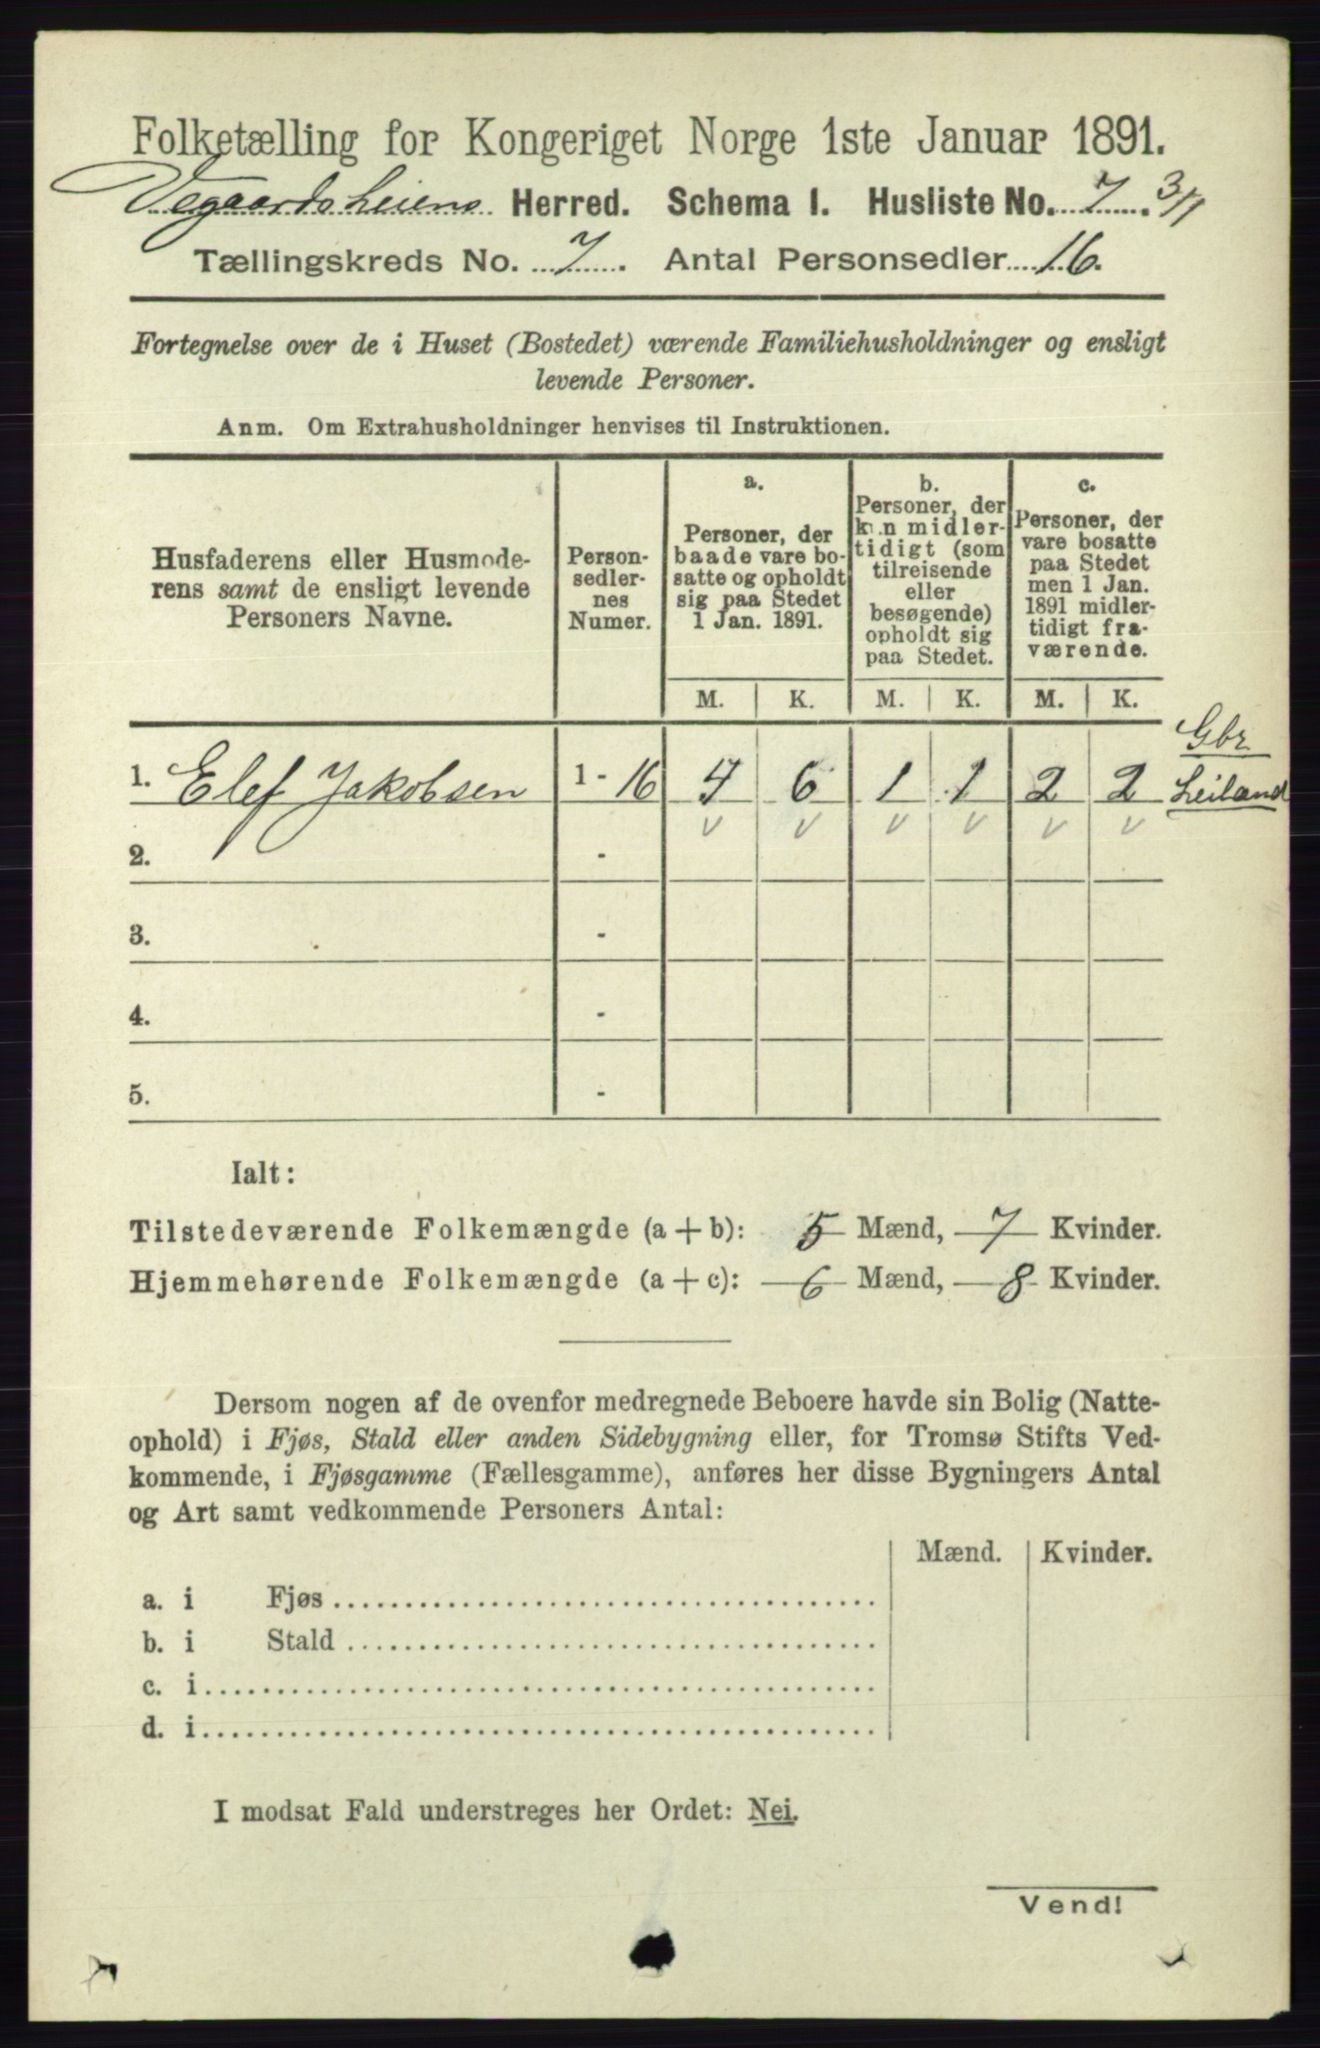 Folketælling for Kongeriget Norge 1ste Januar 1891.
Vegaardsheiens Herred. Schema 1. Husliste No. 7. 3/1
Tællingskreds No. 7. Antal Personsedler 16.
Fortegnelse over de i Huset (Bostedet) værende Familiehusholdninger og ensligt
levende Personer.
Anm. Om Extrahusholdninger henvises til Instruktionen.
Husfaderens eller Husmode-
rens samt de ensligt levende
Personers Navne.
Person-
sedler-
nes
Numer.
a.
Personer, der
baade vare bo-
satte og opholdt
sig paa Stedet
1 Jan. 1891.
b.
Personer, der
kun midler-
tidigt (som
tilreisende
eller
besøgende)
opholdt sig
paa Stedet.
c.
Personer, der
vare bosatte
paa Stedet
men 1 Jan.
1891 midler-
tidigt fra-
værende.
M. K. M. K. M. K.
Gbr
1. Elef Jakobsen 1 - 16 4 6 1 1 2 2 Leiland
v v v v v v
2. -
3. -
4. -
5. -
Ialt:
Tilstedeværende Folkemængde (a + b): 5 Mænd, 7 Kvinder.
Hjemmehørende Folkemængde (a + c): 6 Mænd, 8 Kvinder.
Dersom nogen af de ovenfor medregnede Beboere havde sin Bolig (Natte-
ophold) i Fjøs, Stald eller anden Sidebygning eller, for Tromsø Stifts Ved-
kommende, i Fjøsgamme (Fællesgamme), anføres her disse Bygningers Antal
og Art samt vedkommende Personers Antal:
Mænd. Kvinder.
a. i Fjøs
b. i Stald
c. i
d. i
I modsat Fald understreges her Ordet: Nei.
Vend!